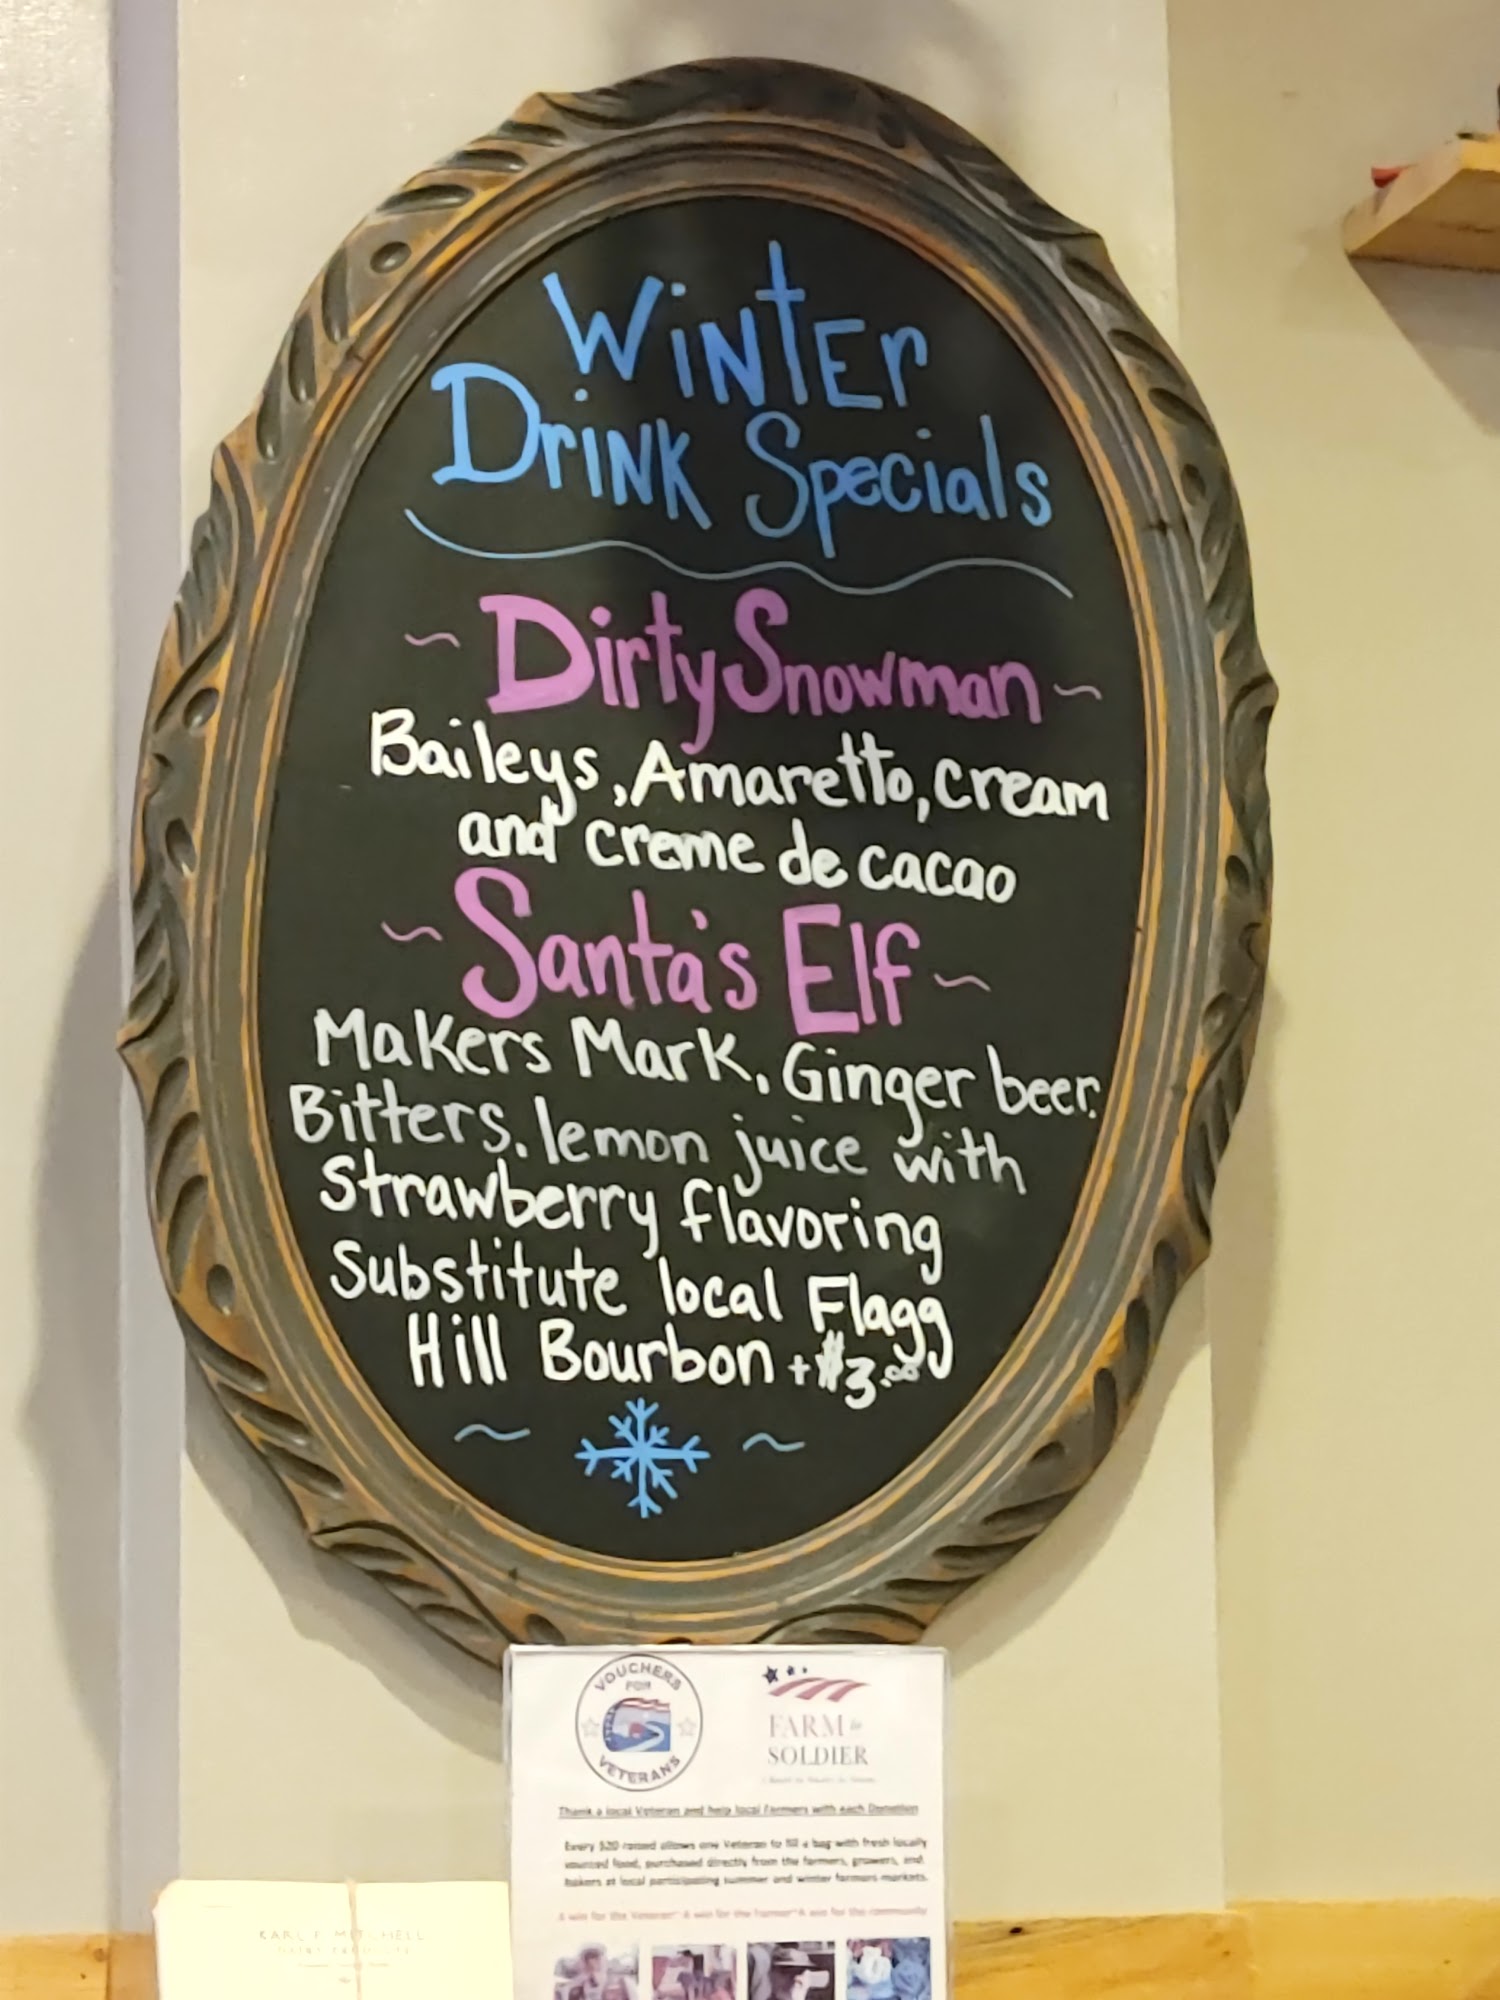 Winter
Drink Specials
~ Dirty Snowman ~
Baileys, Amaretto, cream
and creme de cacao
~ Santa's Elf ~
Makers Mark, Ginger beer,
Bitters, lemon juice with
Strawberry flavoring
Substitute local Flagg
Hill Bourbon + $3.00
~ ~
VOUCHERS
FOR
VETERANS
FARM to
SOLDIER
Thank a local Veteran and help local farmers with each Donation
Every $20 raised allows one Veteran to fill a bag with fresh locally
sourced food, purchased directly from the farmers, growers, and
bakers at local participating summer and winter farmers markets.
A win for the Veteran*A win for the Farmer*A win for the community
KARL F. MITCHELL